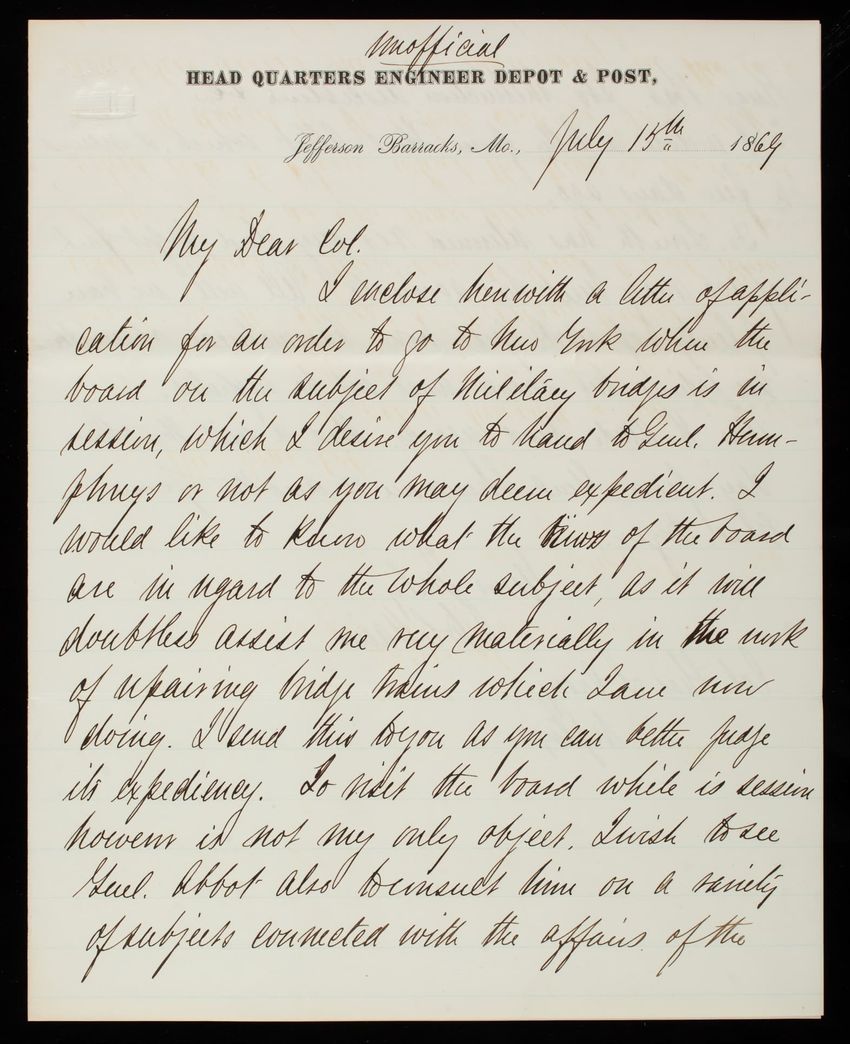 Unofficial
HEAD QUARTERS ENGINEER DEPOT & POST,
Jefferson Barracks, Mo., July 15th 1869
My Dear Col.
I enclose herewith a letter of appli-
cation for an order to go to New York when the
board on the subject of Military bridges is in
session, which I desire you to hand to Genl. Hum-
phreys or not as you may deem expedient. I
would like to know what the views of the board
are in regard to the whole subject, as it will
doubtless assist me very materially in the work
of repairing bridge trains which I am now
doing. I send this to you as you can better judge
its expediency. To visit the board while is session
however is not my only object. I wish to see
Genl. Abbot also to consult him on a variety
of subjects connected with the affairs of the